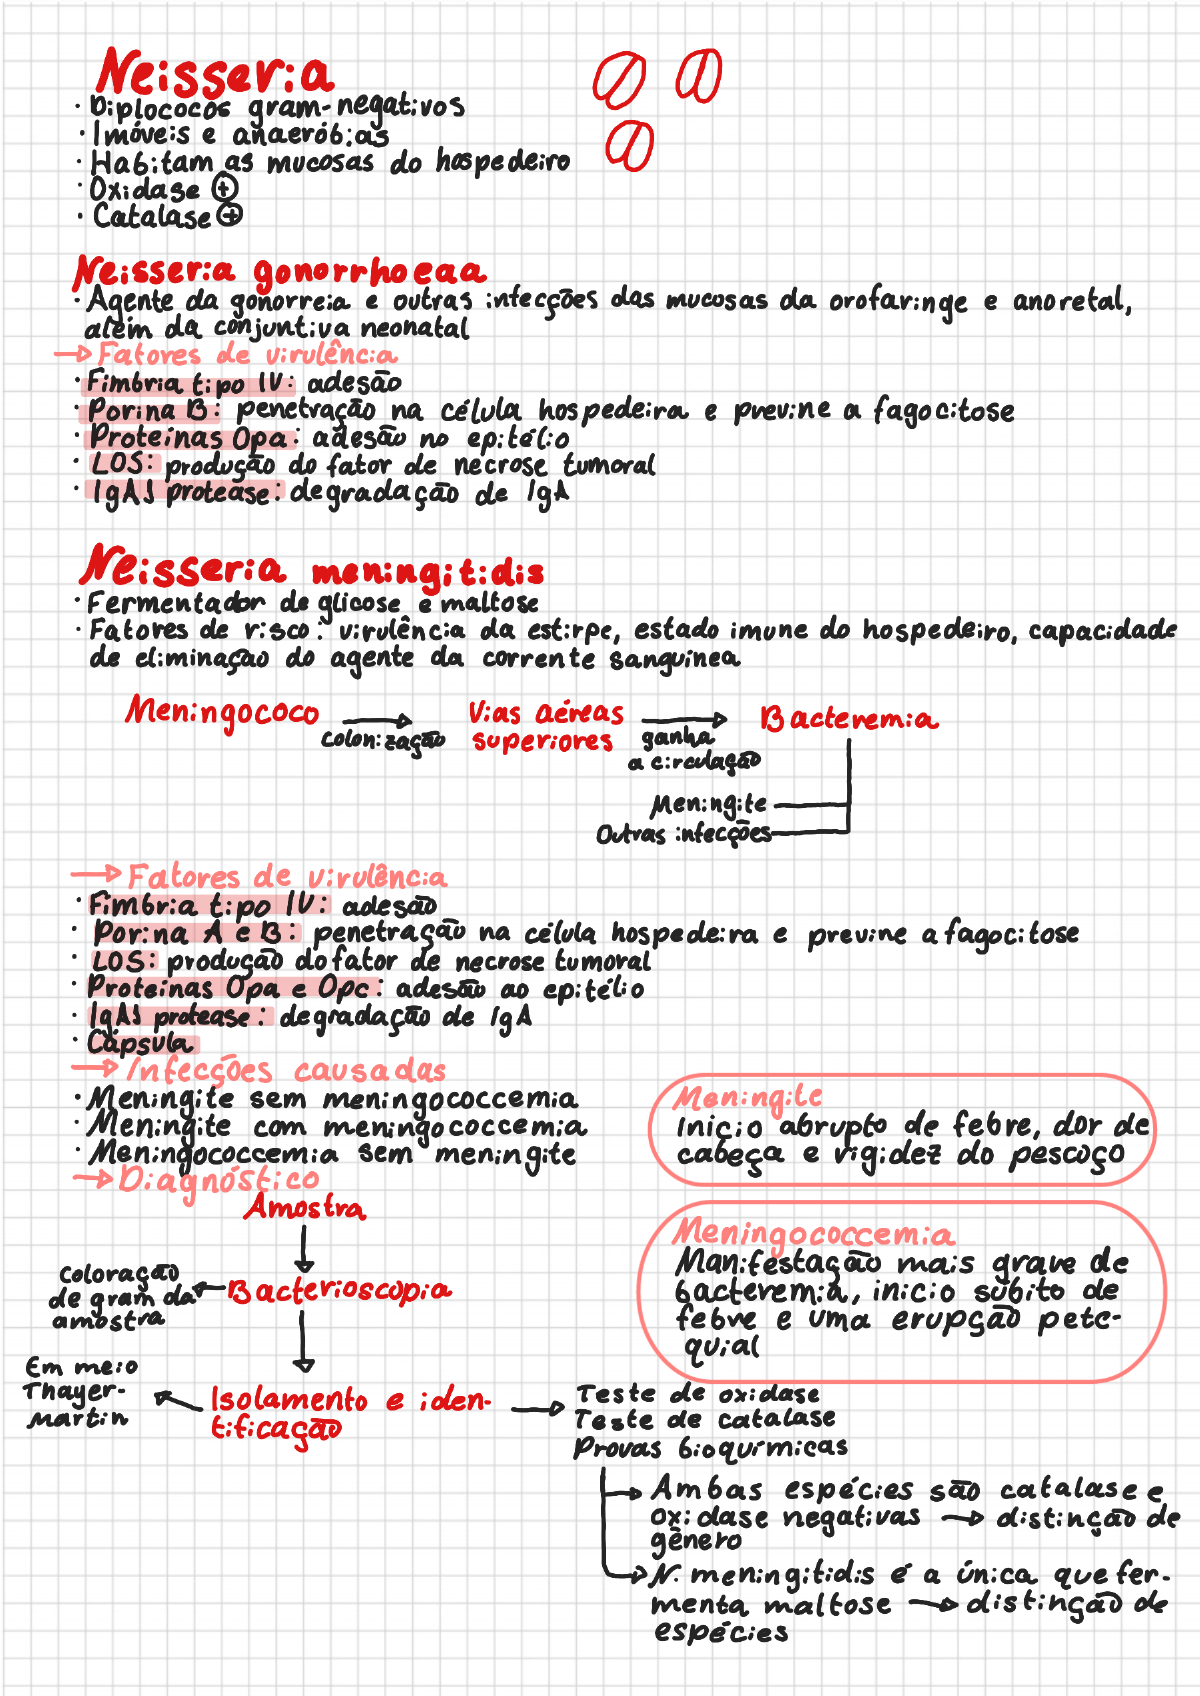 Neisseria
· Diplococos gram-negativos
· Imóveis e anaeróbias
· Habitam as mucosas do hospedeiro
· Oxidase ⊕
· Catalase ⊕
Neisseria gonorrhoeaa
· Agente da gonorreia e outras infecções das mucosas da orofaringe e anoretal,
além da conjuntiva neonatal
→ Fatores de virulência
· Fímbria tipo IV: adesão
· Porina B: penetração na célula hospedeira e previne a fagocitose
· Proteínas Opa: adesão no epitélio
· LOS: produção do fator de necrose tumoral
· IgA1 protease: degradação de IgA
Neisseria meningitidis
· Fermentador de glicose e maltose
· Fatores de risco: virulência da estirpe, estado imune do hospedeiro, capacidade
de eliminação do agente da corrente sanguínea
Meningococo → Vias aéreas → Bacteremia
colonização superiores ganha
a circulação
Meningite
Outras infecções
→ Fatores de virulência
· Fímbria tipo IV: adesão
· Porina A e B: penetração na célula hospedeira e previne a fagocitose
· LOS: produção do fator de necrose tumoral
· Proteínas Opa e Opc: adesão ao epitélio
· IgA1 protease: degradação de IgA
· Cápsula
→ Infecções causadas
· Meningite sem meningococcemia
· Meningite com meningococcemia
· Meningococcemia sem meningite
Meningite
Início abrupto de febre, dor de
cabeça e rigidez do pescoço
Meningococcemia
Manifestação mais grave de
bacteremia, início súbito de
febre e uma erupção pete-
quial
→ Diagnóstico
Amostra
Bacterioscopia
coloração
de gram da
amostra
Isolamento e iden-
tificação
Em meio
Thayer-
martin
Teste de oxidase
Teste de catalase
Provas bioquímicas
→ Ambas espécies são catalase e
oxidase negativas → distinção de
gênero
→ N. meningitidis é a única que fer-
menta maltose → distinção de
espécies